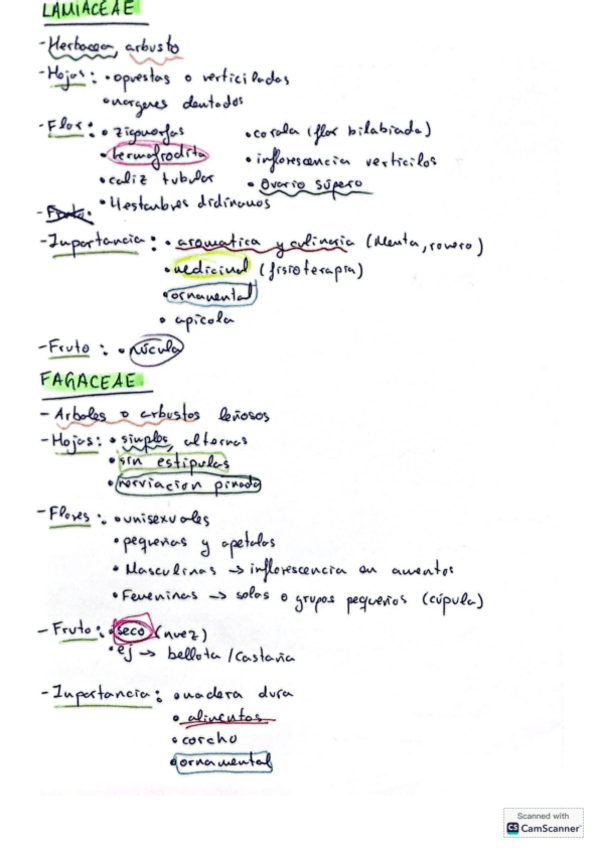 LAMIACEAE
- Herbacea, arbusto
- Hojas: • opuestas o verticiladas
• margenes dentados
- Flor: • zigomorfas • corola (flor bilabiada)
• hermafrodita • inflorescencia verticilos
• caliz tubular • Ovario súpero
• 4 estambres didinamos
- Fruto:
- Importancia: • aromatica y culinaria (Menta, romero)
• medicinal (fisioterapia)
• ornamental
• apicola
- Fruto: • núcula
FAGACEAE
- Arboles o arbustos leñosos
- Hojas: • simples, alternas
• sin estipulas
• nerviacion pinada
- Flores: • unisexuales
• pequeñas y apetalas
• Masculinas → inflorescencia en amentos
• Femeninas → solas o grupos pequeños (cúpula)
- Fruto: • seco (nuez)
• ej → bellota / Castaña
- Importancia: • madera dura
• alimentos
• corcho
• ornamental
Scanned with
CS CamScanner